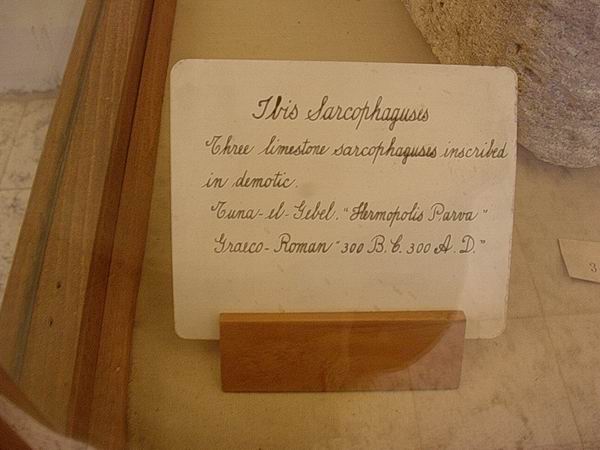 Ibis Sarcophaguses
Three limestone sarcophaguses inscribed
in demotic.
Tuna-el-Gebel. "Hermopolis Parva"
Graeco-Roman "300 B.C. 300 A.D."
3